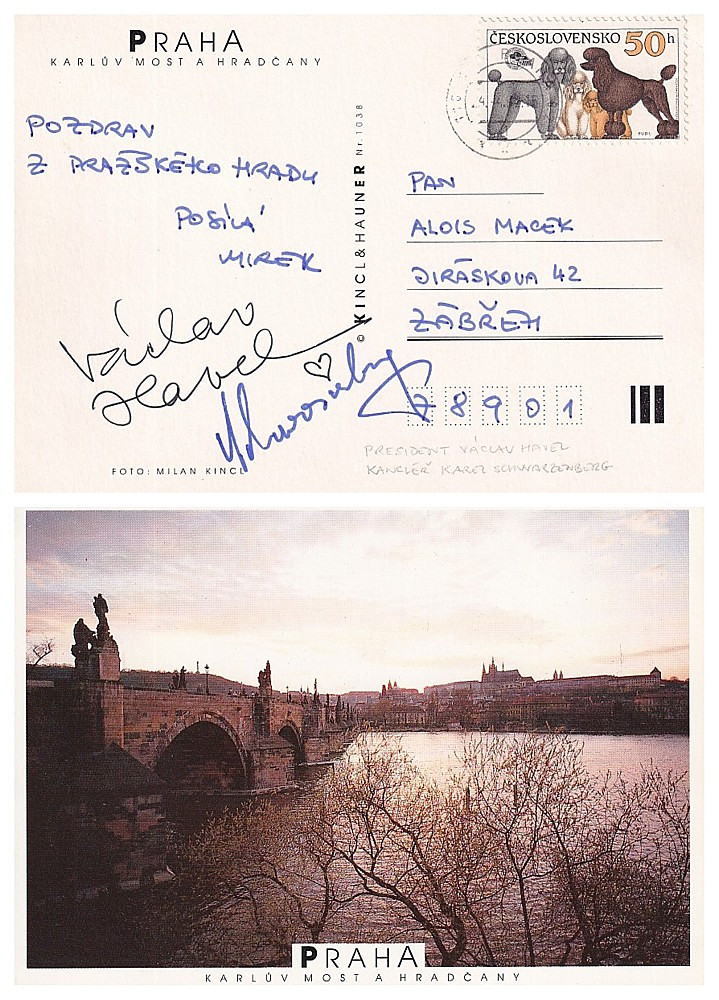 PRAHA
KARLŮV MOST A HRADČANY
ČESKOSLOVENSKO 50h
PUDL
POZDRAV
Z PRAŽSKÉHO HRADU
POSÍLÁ
MIREK
Václav
Havel
© KINCL & HAUNER Nr. 1038
PAN
ALOIS MACEK
JIRÁSKOVA 42
ZÁBŘEH
78901
PRESIDENT VÁCLAV HAVEL
KANCLÉŘ KAREL SCHWARZENBERG
FOTO: MILAN KINCL
PRAHA
KARLŮV MOST A HRADČANY